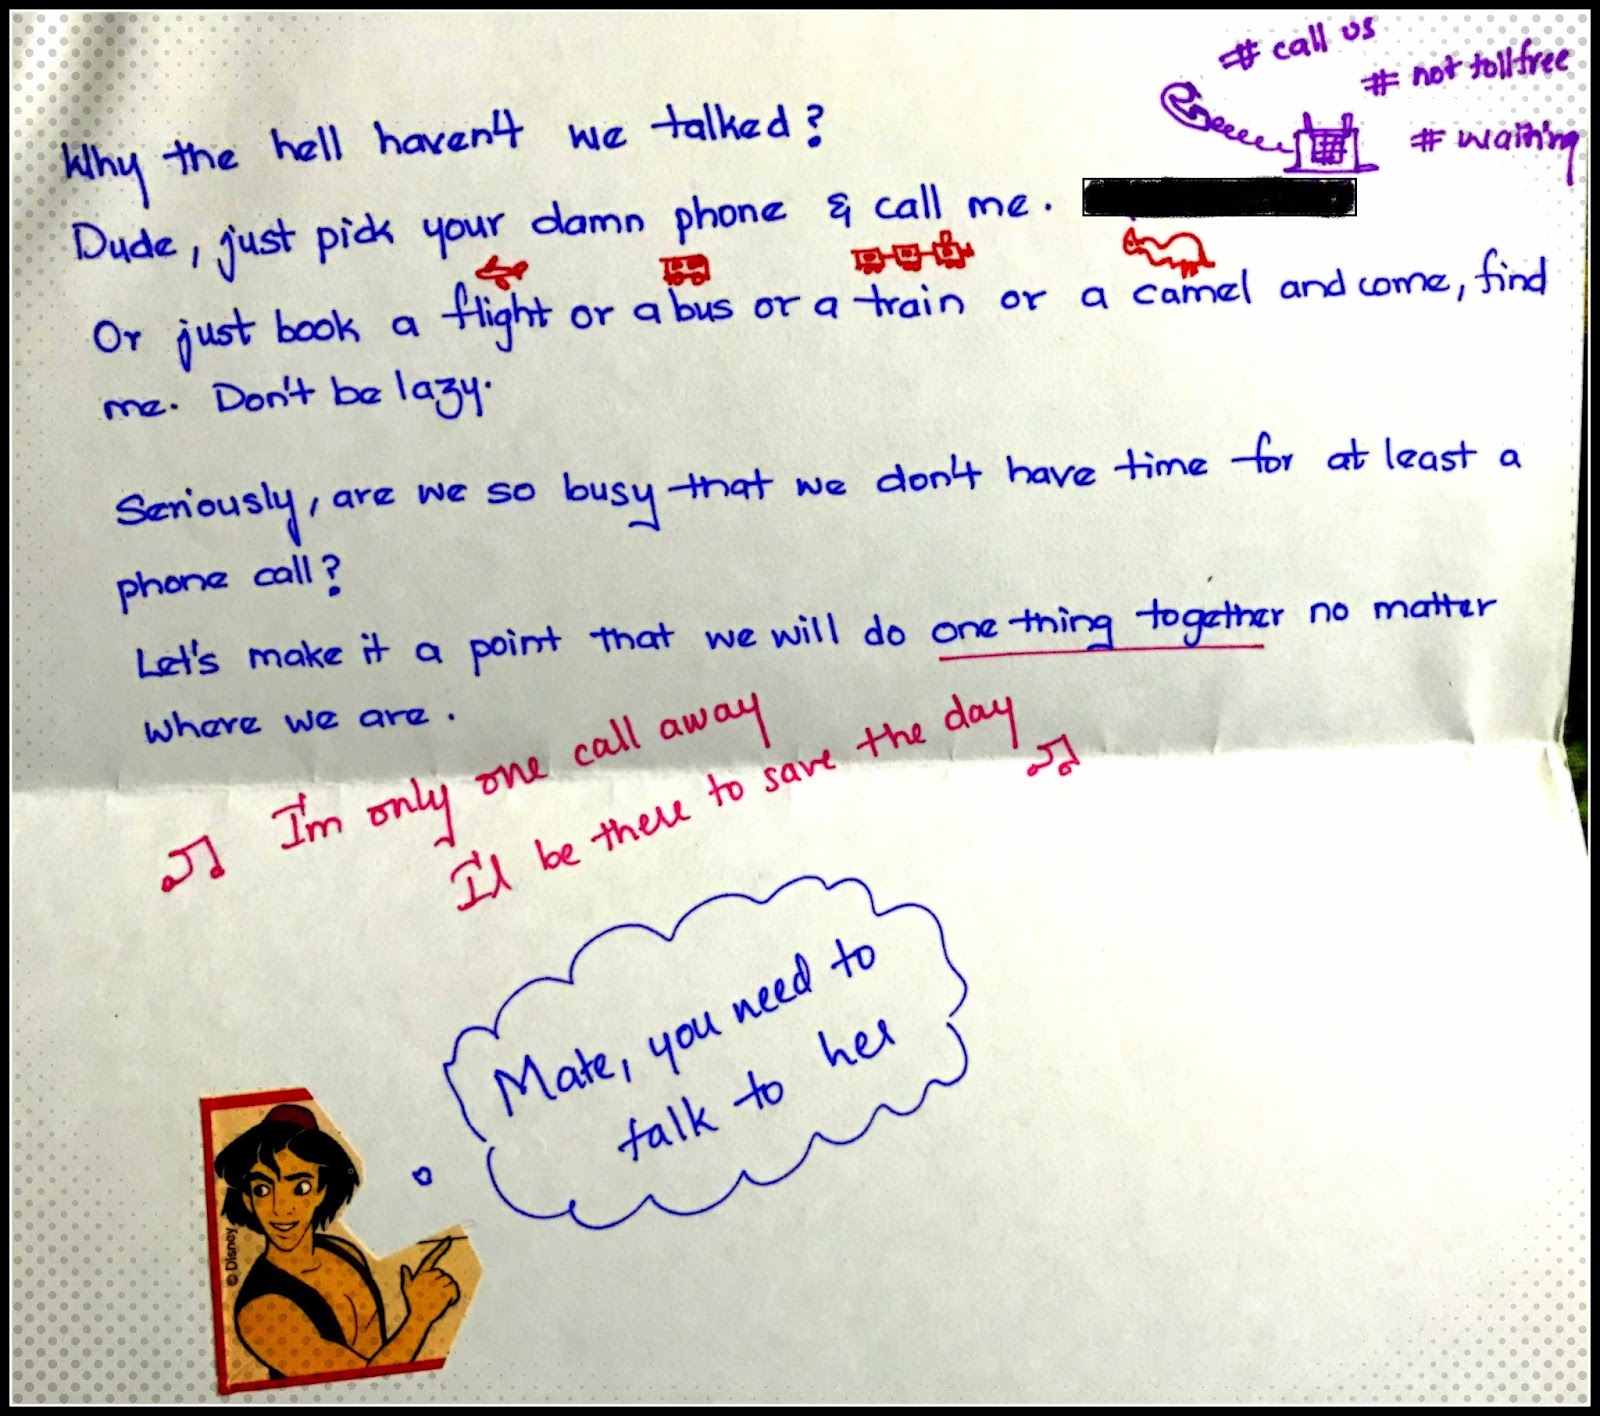 # call us
# not tollfree
# waiting
Why the hell haven't we talked?
Dude, just pick your damn phone & call me.
Or just book a flight or a bus or a train or a camel and come, find
me. Don't be lazy.
Seriously, are we so busy that we don't have time for at least a
phone call?
Let's make it a point that we will do one thing together no matter
where we are.
I'm only one call away
I'll be there to save the day
Mate, you need to
talk to her
© Disney